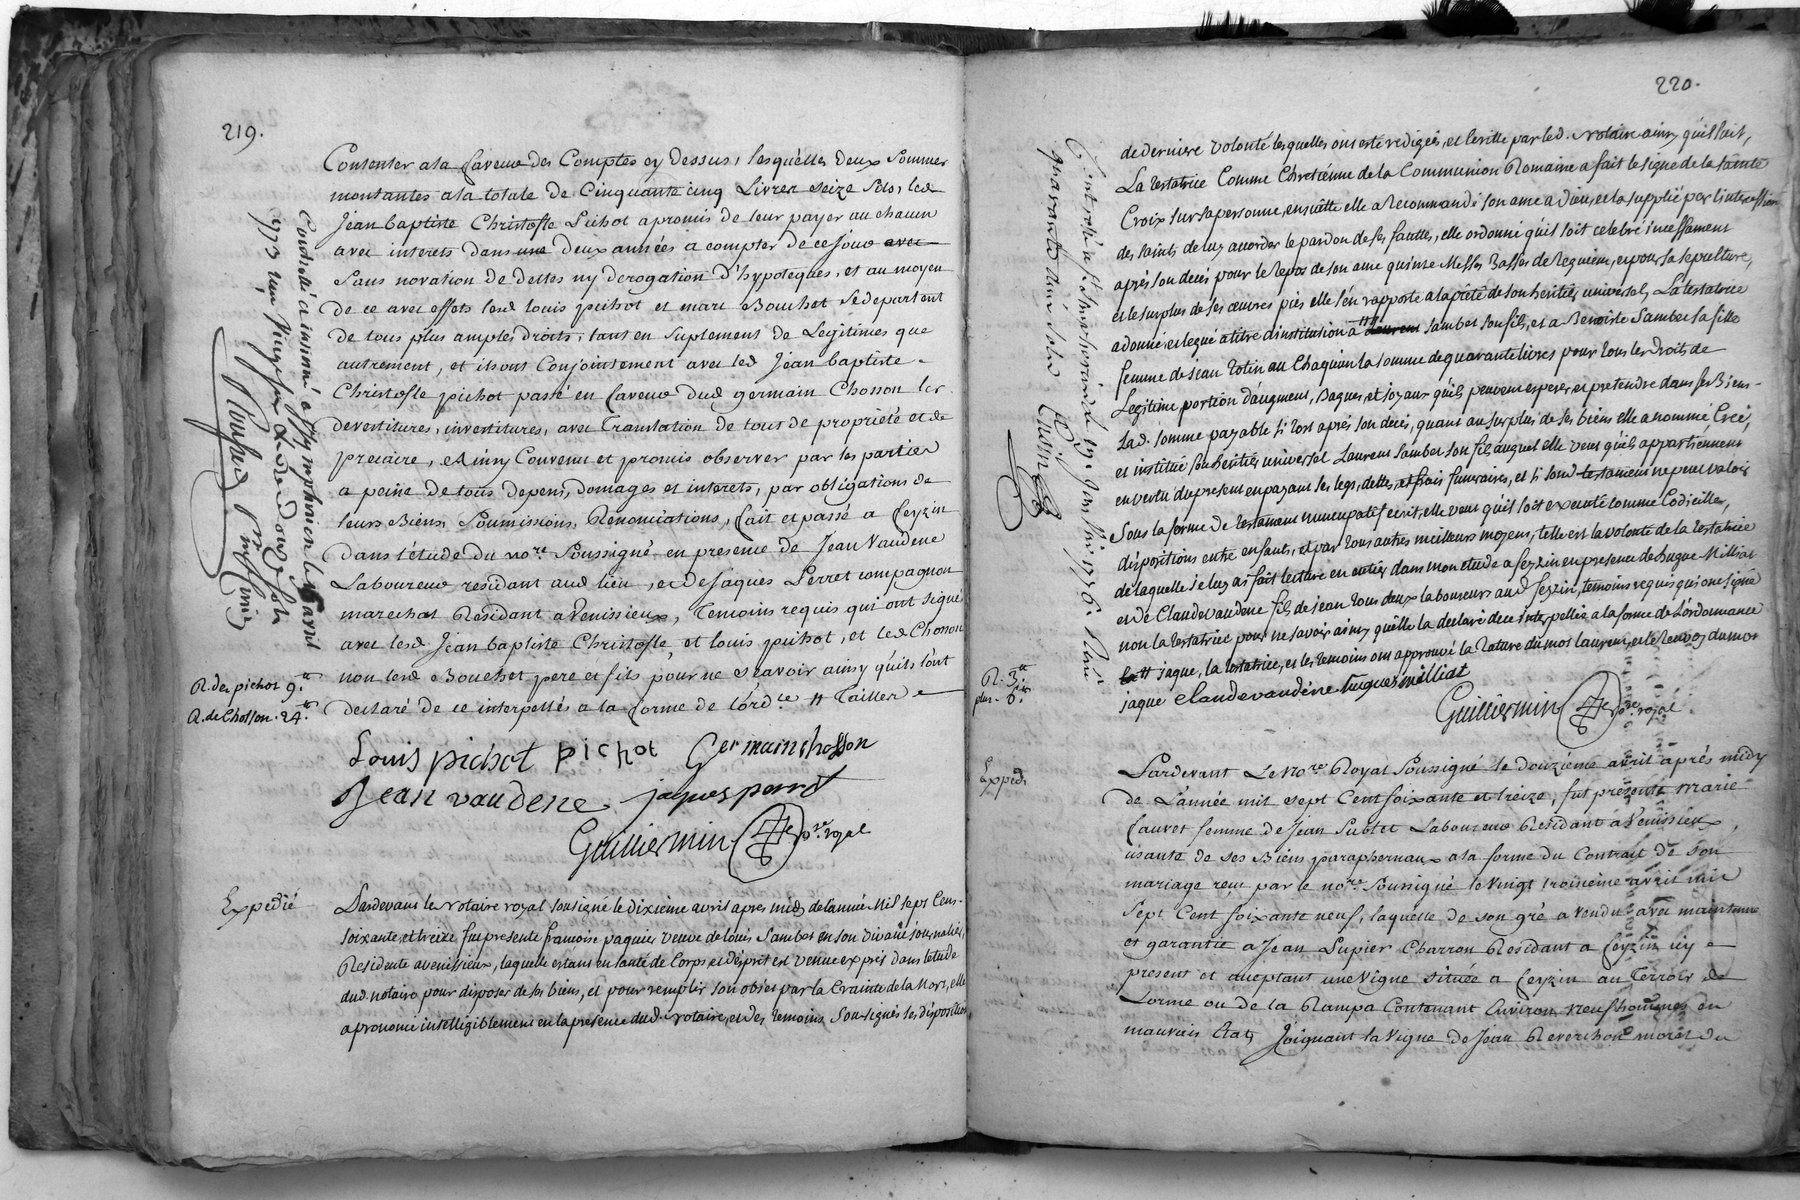 219.
Contenter a la faveur des Comptes cy dessus, lesquelles deux sommes
montantes a la totale de Cinquante cinq Livres seize sols, led
Jean baptiste Christofle Pichot a promis de leur payer au chacun
avec interets dans une deux années a compter de ce jour avec
Sans novation de dettes ny derogation d'hypoteques, et au moyen
de ce avec effets lesd Louis pichot et marc Bouchet se departent
de tous plus amples droits, tant en suplement de Legitimes que
autrement, et ils ont Conjointement avec led Jean baptiste
Christofle pichot passé en faveur dud germain Chosson les
devertitures, investitures, avec translation de tout de propriété et de
precaire, et Ainsy Convenu et promis observer par les parties
a peine de tous depens, domages et interets, par obligations de
leurs Biens, Soumissions, Renonciations, fait et passé a feyzin
dans l'étude du no.re Soussigné en presence de Jean Vaudene
Laboureur residant aud lieu, et de Jaques Perret compagnon
marechal Residant a Venissieux, temoins requis qui ont signé
avec led Jean baptiste Christofle, et Louis pichot, et led Chosson
non lesd Bouchet pere et fils pour ne sçavoir ainsy qu'ils l'ont
declaré de ce interpellés a la forme de l'ord.ce Tailler
Controlé et insinué a St Symphorien le avril
1773 Reçu
R. des pichot 9.tt
R. de Chosson. 24.tt
Louis pichot pichot Germain chosson
Jean vaudene. jaques perret
Guilliermin no.re royal
Expedié
Pardevant le Notaire royal soussigné le dixième avril apres midy de l'année Mil sept Cens
soixante et treize fut presente francoise paquier veuve de louis Sambet en son vivant journalier,
Residente a venissieux, laquelle estant en santé de Corps, et d'esprit est venue exprés dans l'etude
dud. notaire pour disposer de ses biens, et pour remplir son objet par la Crainte de la Mort, elle
a prononcé intelligiblement en la presence dud. notaire, et des temoins Sous signés ses dispositions
220.
de derniere volonté lesquelles ont esté redigées, et ecritte par led. Notaire ainsy qu'il suit,
La testatrice Comme Chretiénne de la Communion Romaine a fait le signe de la sainte
Croix sur sa personne, ensuitte elle a Recommandé son ame a Dieu, et la supplié par l'intercession
des saints de luy accorder le pardon de ses fauttes, elle ordonne qu'il soit celebré incessament
aprés son decés pour le repos de son ame quinse Messes Basses de Requiem, et pour sa sepulture,
et le surplus de ses œuvres pies elle s'en rapporte a la pieté de son heritier universel, La testatrice
a donné et legué a titre d'institution a laurent Sambet son fils, et a Benoiste Sambet sa fille
femme de Jean Rotin au Chaquun la somme de quarante livres pour tous les droits de
Legitime, portion d'augment, Bagues, et joyaux qu'ils peuvent esperer, et pretendre dans ses Biens.
Lad. somme payable si tost aprés son decés, quant au surplus de ses biens elle a nommé, Créé,
et institué son heritier universel Laurent Sambet son fils auquel elle veut qu'ils appartiennent
en vertu du present en payant ses legs, dettes, et frais funeraires, et si sond testament ne peut valoir
Sous la forme de testament nuncupatif ecrit, elle veut qu'il soit executé Comme Codicille,
dispositions entre enfants, et par tous autres meilleurs moyens, telle est la volonté de la testatrice
de laquelle je luy ai fait lecture en entier dans mon etude a feyzin en presence de hugue Milliat
et de Claude vaudene fils de jean tous deux laboureurs aud. feyzin, temoins requis qui ont signé
non la testatrice pour ne savoir ainsy qu'elle la declaré de ce interpellée a la forme de l'ordonnance
jaque, la testatrice, et les temoins ont approuvé la rature du mot laurent, et le renvoy du mot
jaque Claudevaudéne hugues milliat
Guilliermin no.re royal
R. 3.tt
Expedi.
Pardevant Le no.re Royal Soussigné le douziéme avril aprés midy
de L'année mil sept Cent soixante et treize, fut presente Marie
fauvet femme de Jean Sublet Laboureur Residant a Venissieux,
usante de ses Biens paraphernaux a la forme du Contrat de son
mariage reçu par le no.re Soussigné le vingt troisieme avril mil
sept Cent soixante neuf, laquelle de son gré a vendu avec maintenue
et garantie a Jean Lupier Charron Residant a feyzin icy
present et aceptant une Vigne située a feyzin au Terroir de
Lorme ou de la Rampa Contenant Environ neuf hommées en
mauvais Etat, Joignant la Vigne de Jean Reverchon morel du